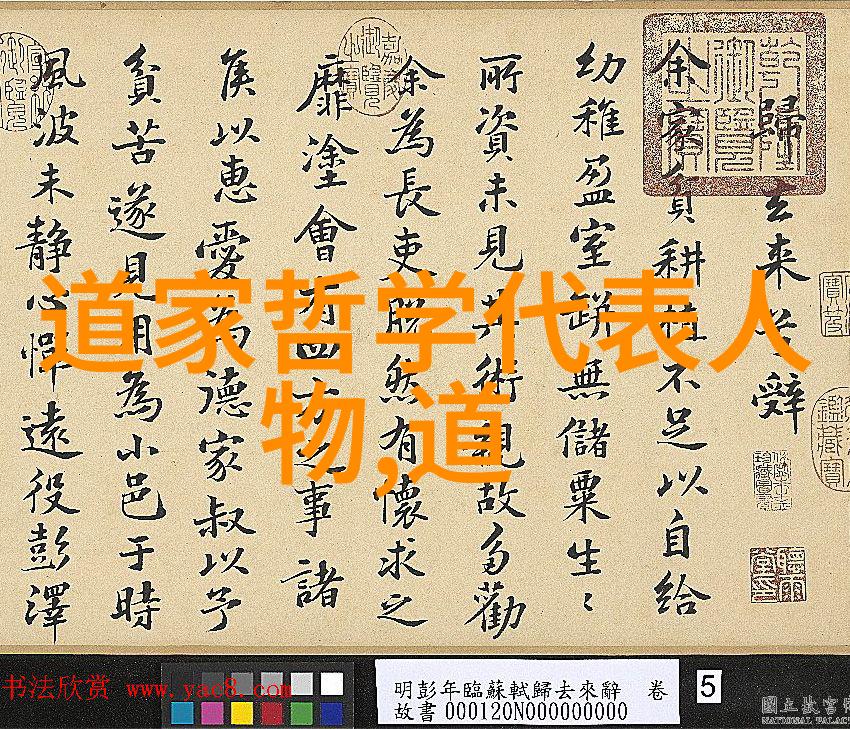 歸去來兮辭
余家貧耕植不足以自給
幼稚盈室缾無儲粟生〻
所資未見其術親故多勸
余為長吏脫然有懷求之
靡塗會有四方之事諸
矦以惠愛為德家叔以予
貧苦遂見用為小邑于時
風波未靜心憚遠役彭澤
道家哲学代表人
物,道
书法欣赏 www.yac8.com
明彭年臨蘇軾歸去來辭 卷 5
故書 000120N000000000
國立故宮
NATIONAL PALAC